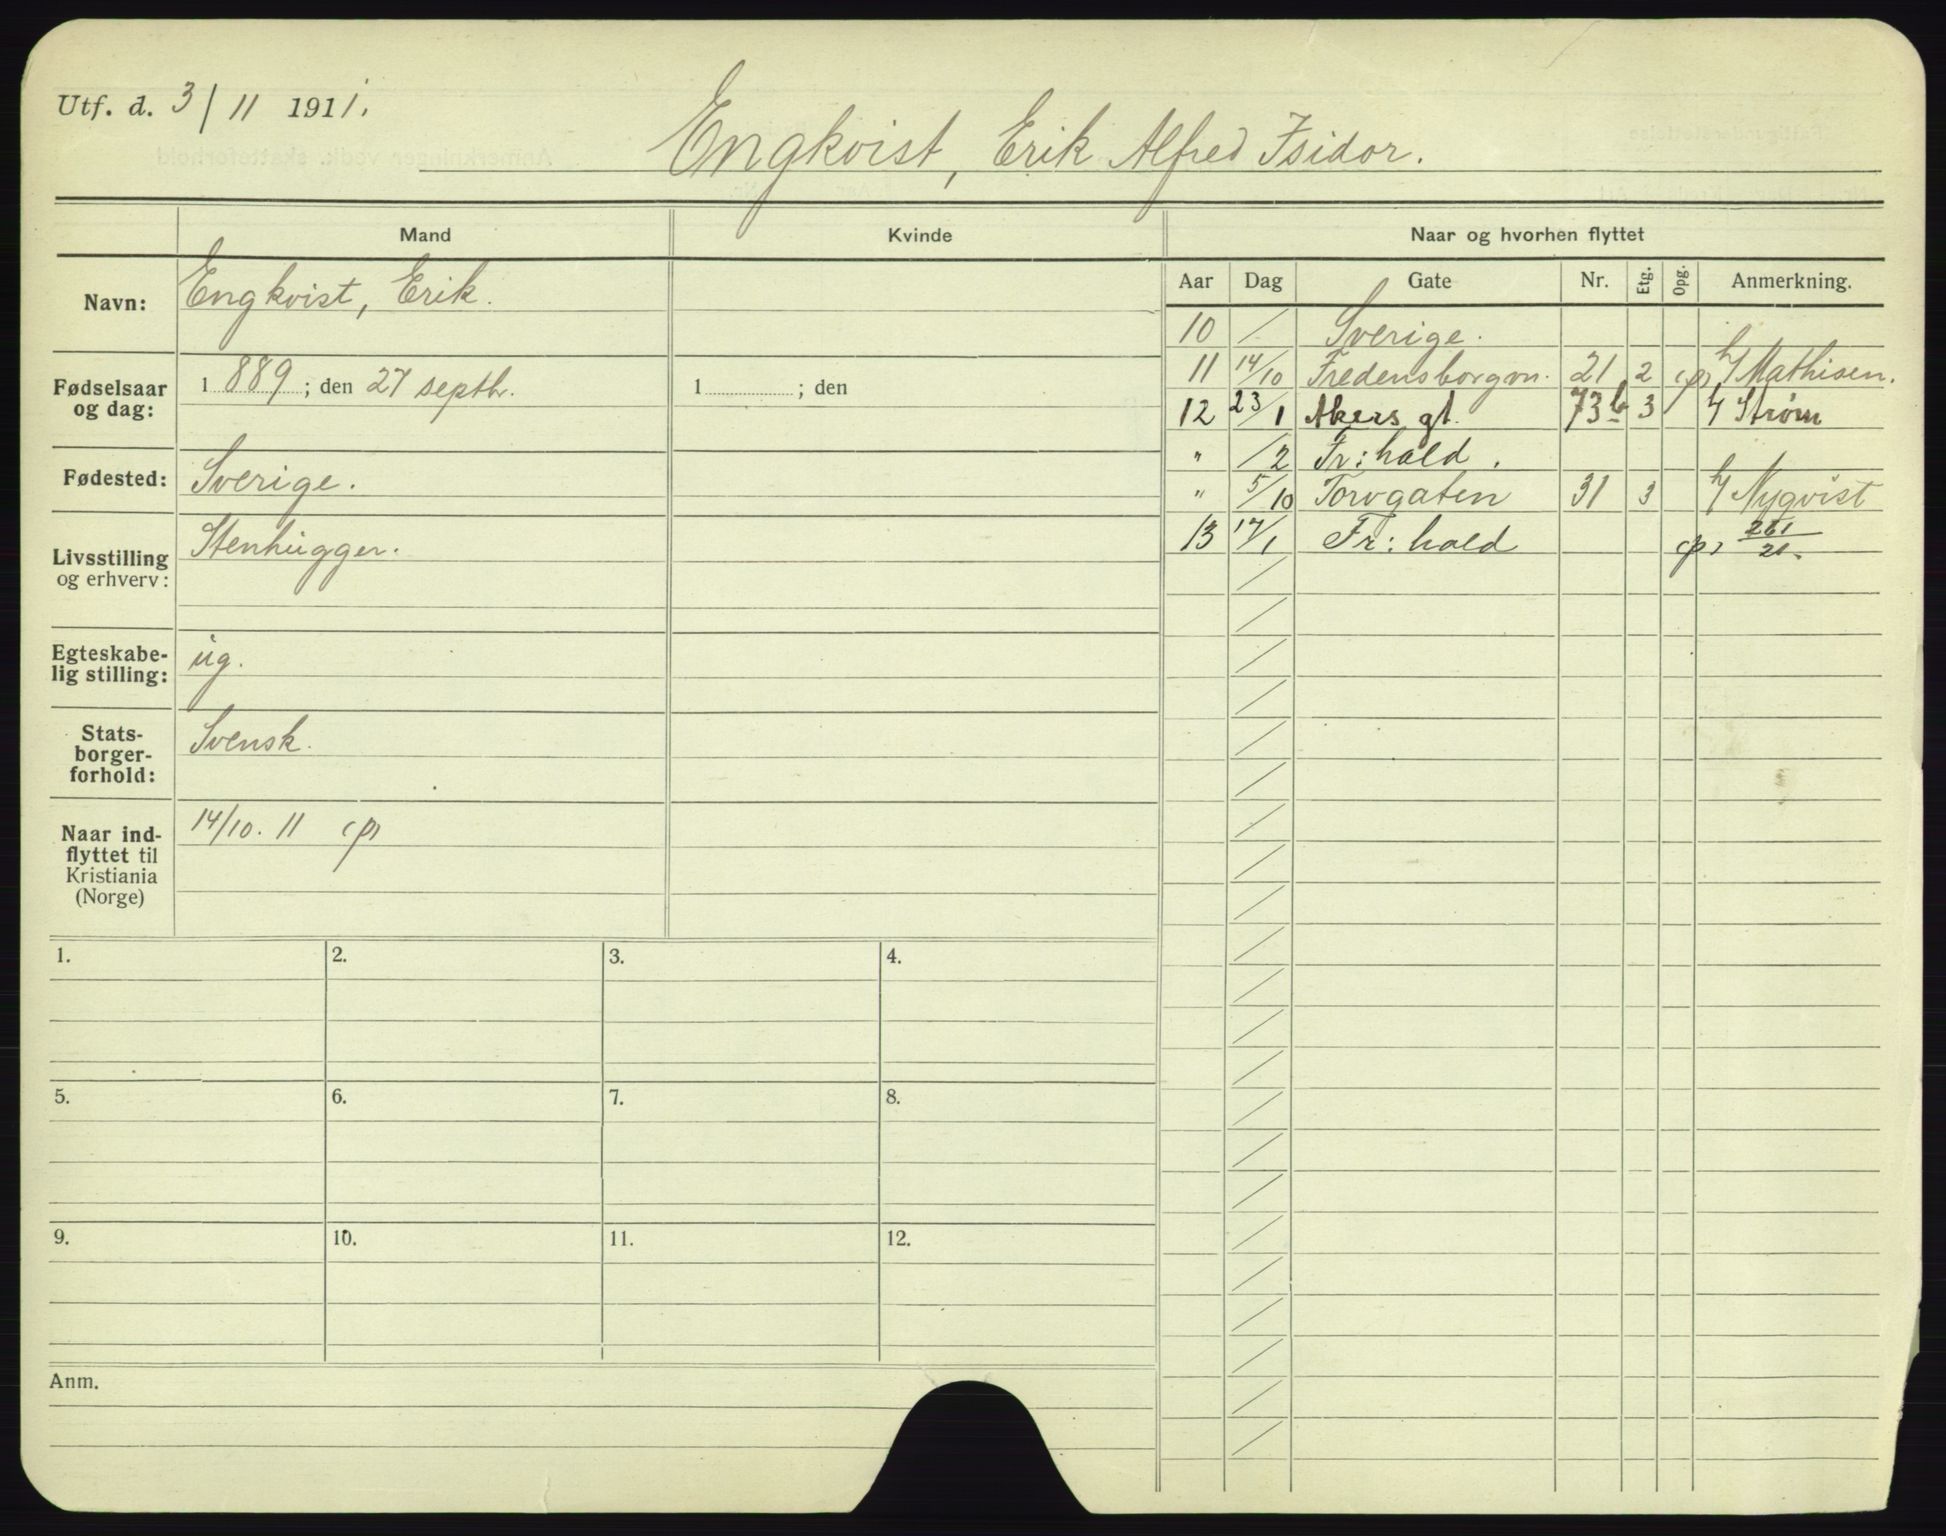 Utf. d. 3/11 1911.
Engkvist, Erik Alfred Isidor.
Mand Kvinde Naar og hvorhen flyttet
Navn: Engkvist, Erik.
Fødselsaar og dag: 1889; den 27 septbr. 1 ; den
Fødested: Sverige.
Livsstilling og erhverv: Stenhugger.
Egteskabe-
lig stilling: ug.
Stats-
borger-
forhold: Svensk.
Naar ind-
flyttet til
Kristiania
(Norge) 14/10. 11 (p)
Aar Dag Gate Nr. Etg. Opg. Anmerkning.
10 / Sverige.
11 14/10 Fredensborgvn. 21 2 (p) h/ Mathisen.
12 23/1 Akers gt. 73b 3 h/ Strøm
" /2 Fr: hald.
" 5/10 Torvgaten 31 3 h/ Nyqvist
13 17/1 Fr: hald (p) 261/21.
1. 2. 3. 4.
5. 6. 7. 8.
9. 10. 11. 12.
Anm.